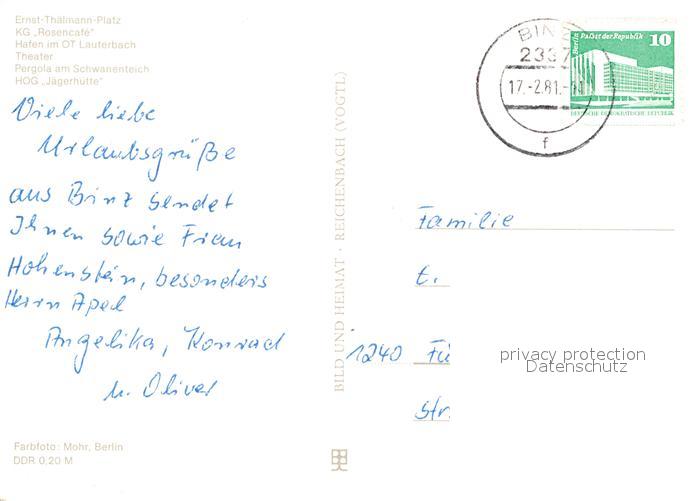 Ernst-Thälmann-Platz
KG „Rosencafé"
Hafen im OT Lauterbach
Theater
Pergola am Schwanenteich
HOG „Jägerhütte"
Viele liebe
Urlaubsgrüße
aus Binz sendet
Ihnen sowie Frau
Hohenstein, besonders
Herrn Apel
Angelika, Konrad
u. Oliver
Farbfoto: Mohr, Berlin
DDR 0,20 M
BILD UND HEIMAT · REICHENBACH (VOGTL)
BINZ
2337
17.-2.81.-
f
Berlin Palast der Republik 10
DEUTSCHE DEMOKRATISCHE REPUBLIK
Familie
t.
1240 Fü
Str.
privacy protection
Datenschutz